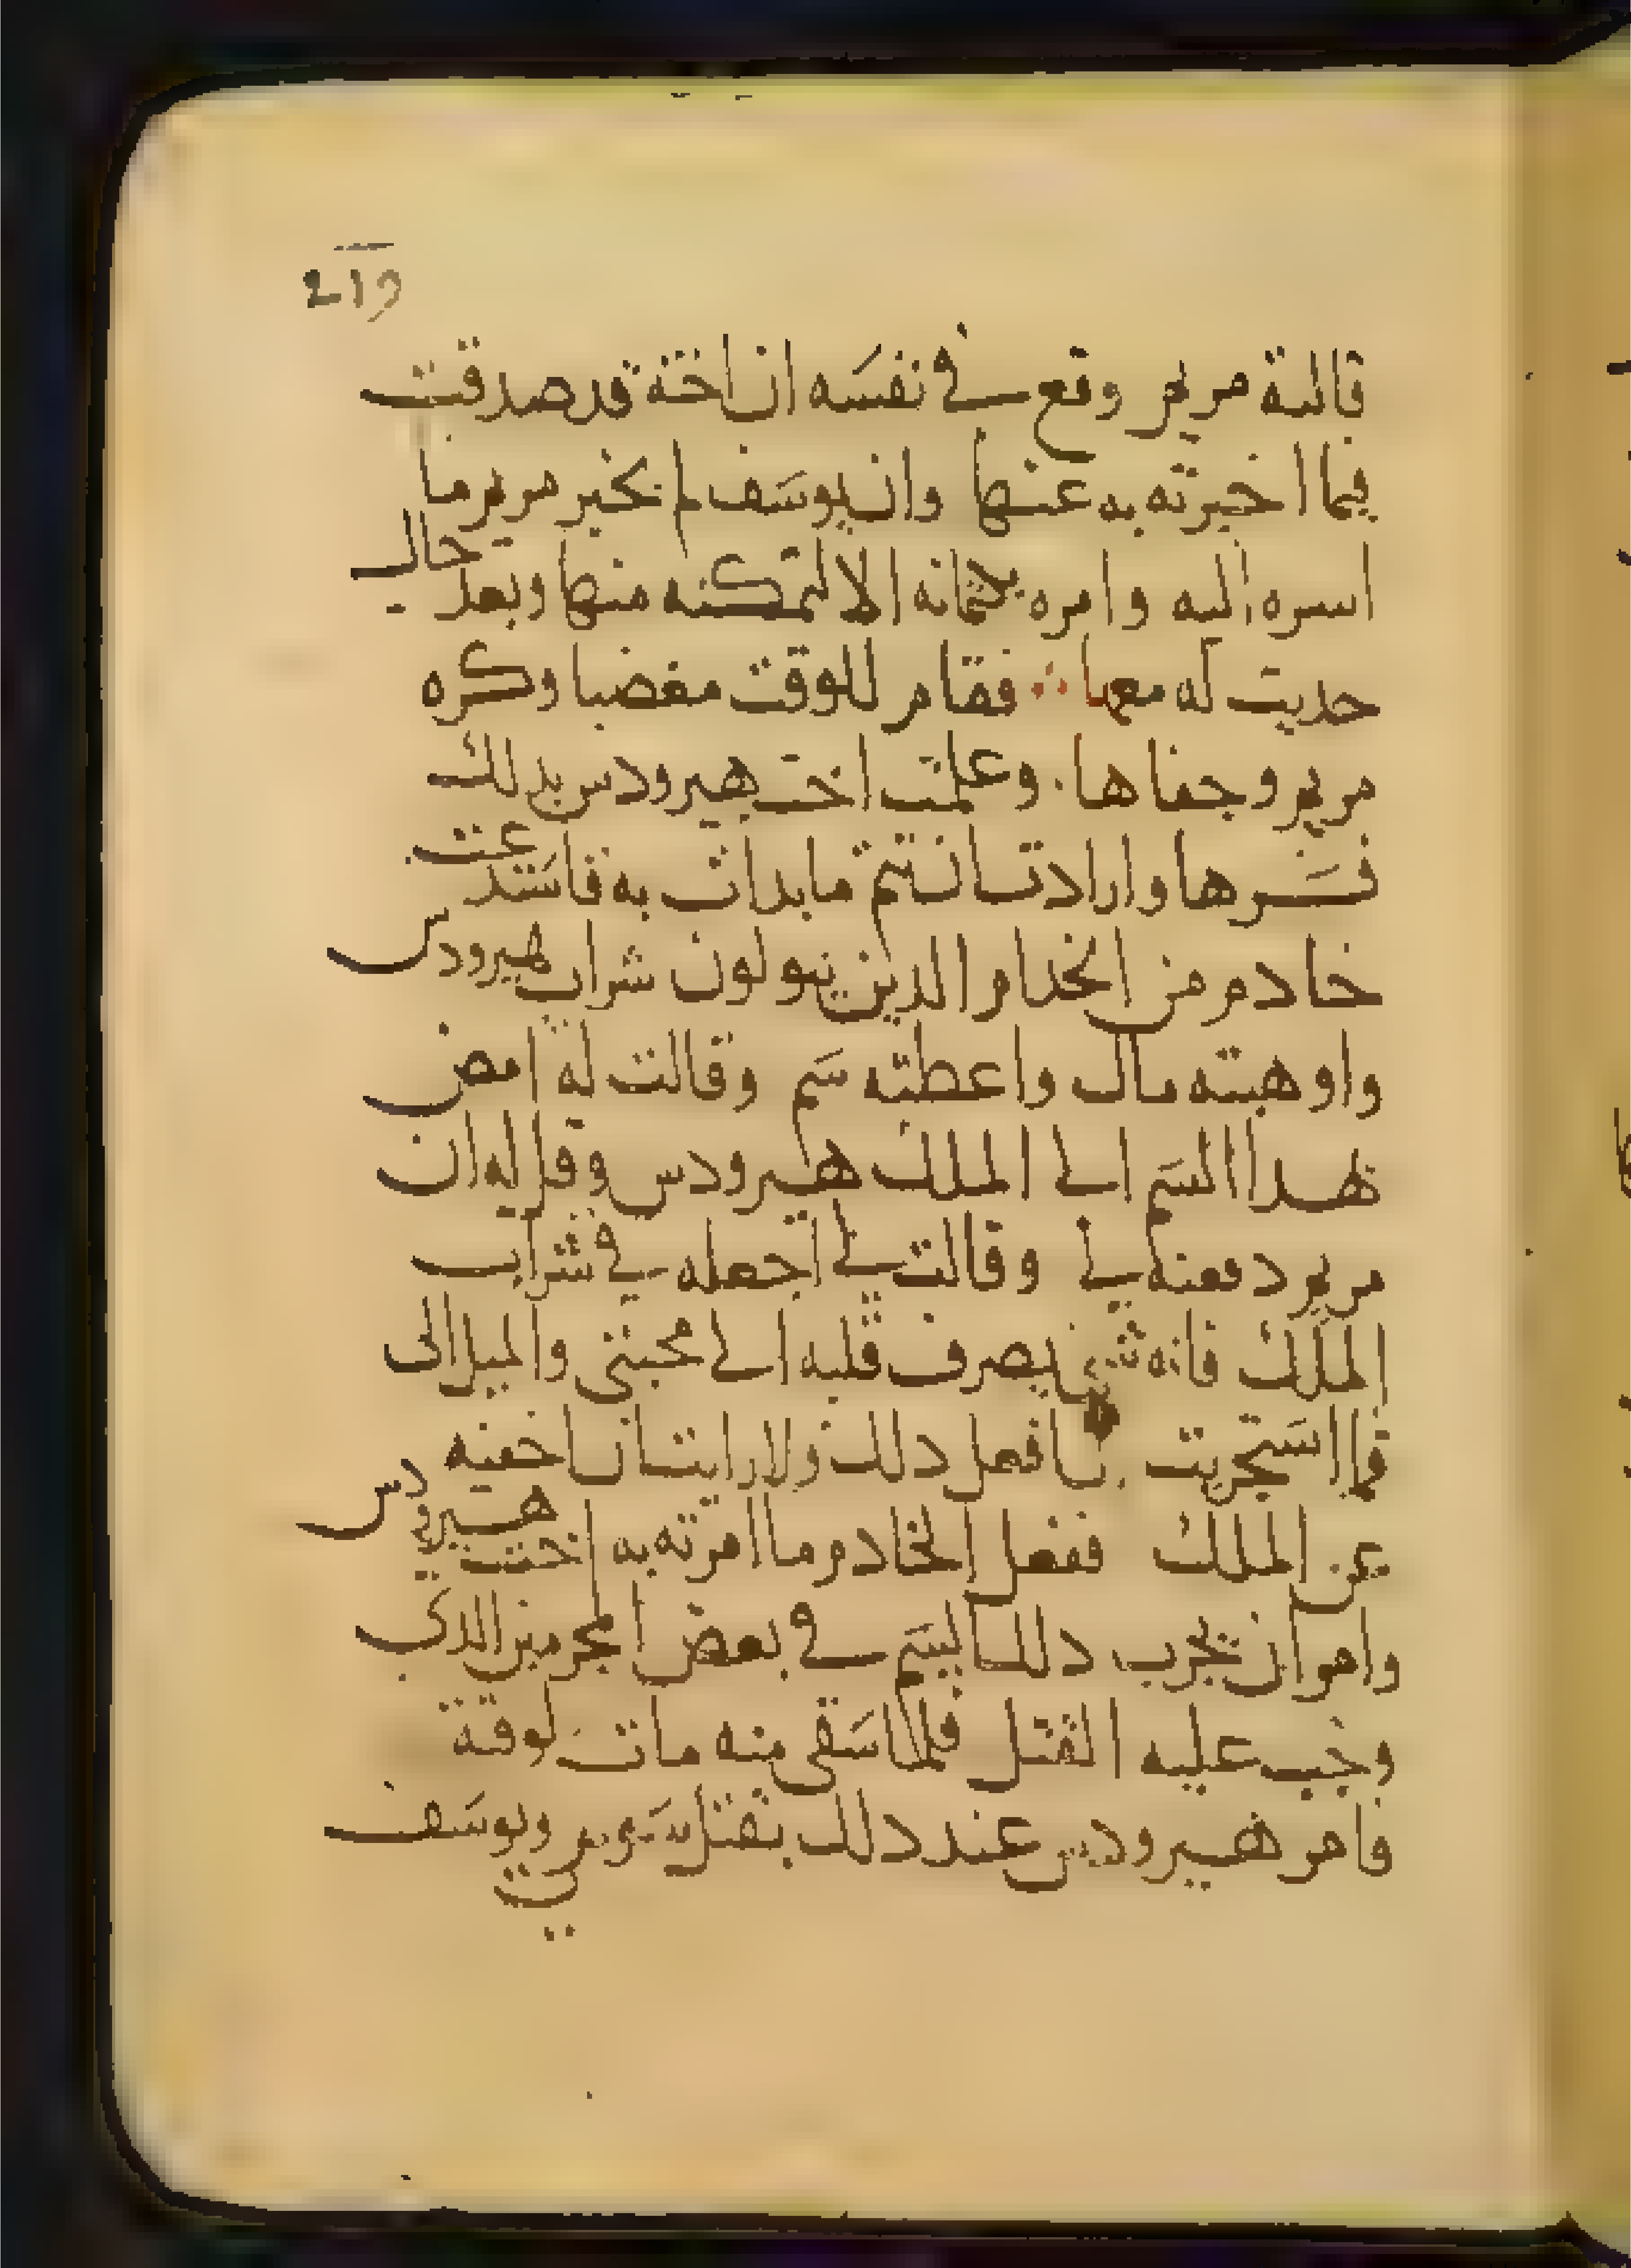 219
قالته مريم وقع في نفسه ان اخته قد صدقت
فيما اخبرته به عنها وان يوسف لم يخبر مريم ما
اسره اليه وامره بكتمانه الا لتمكنه منها وبعد حال
حديت له معها ∴ فقام للوقت مغضبا وكره
مريم وجفاها . وعلمت اخت هيرودس بدلك
فسرها وارادت ان تتم ما بدات به فاستدعت
خادم من الخدام الدين يتولون شراب هيرودس
واوهبته مال واعطته سم وقالت له امض
بهدا السم الى الملك هيرودس وقل له ان
مريم دفعته لي وقالت لي اجعله في شراب
الملك فانه شي يصرف قلبه الى محبتي والميل الي
فما استجريت افعل دلك ولا رايت ان اخفيه
عن الملك ففعل الخادم ما امرته به اخت هيرودس
وامر ان يجرب دلك السم في بعض المجرمين الدي
وجب عليه القتل فلما سقي منه مات لوقته
فامر هيرودس عند دلك بقتل مريم ويوسف